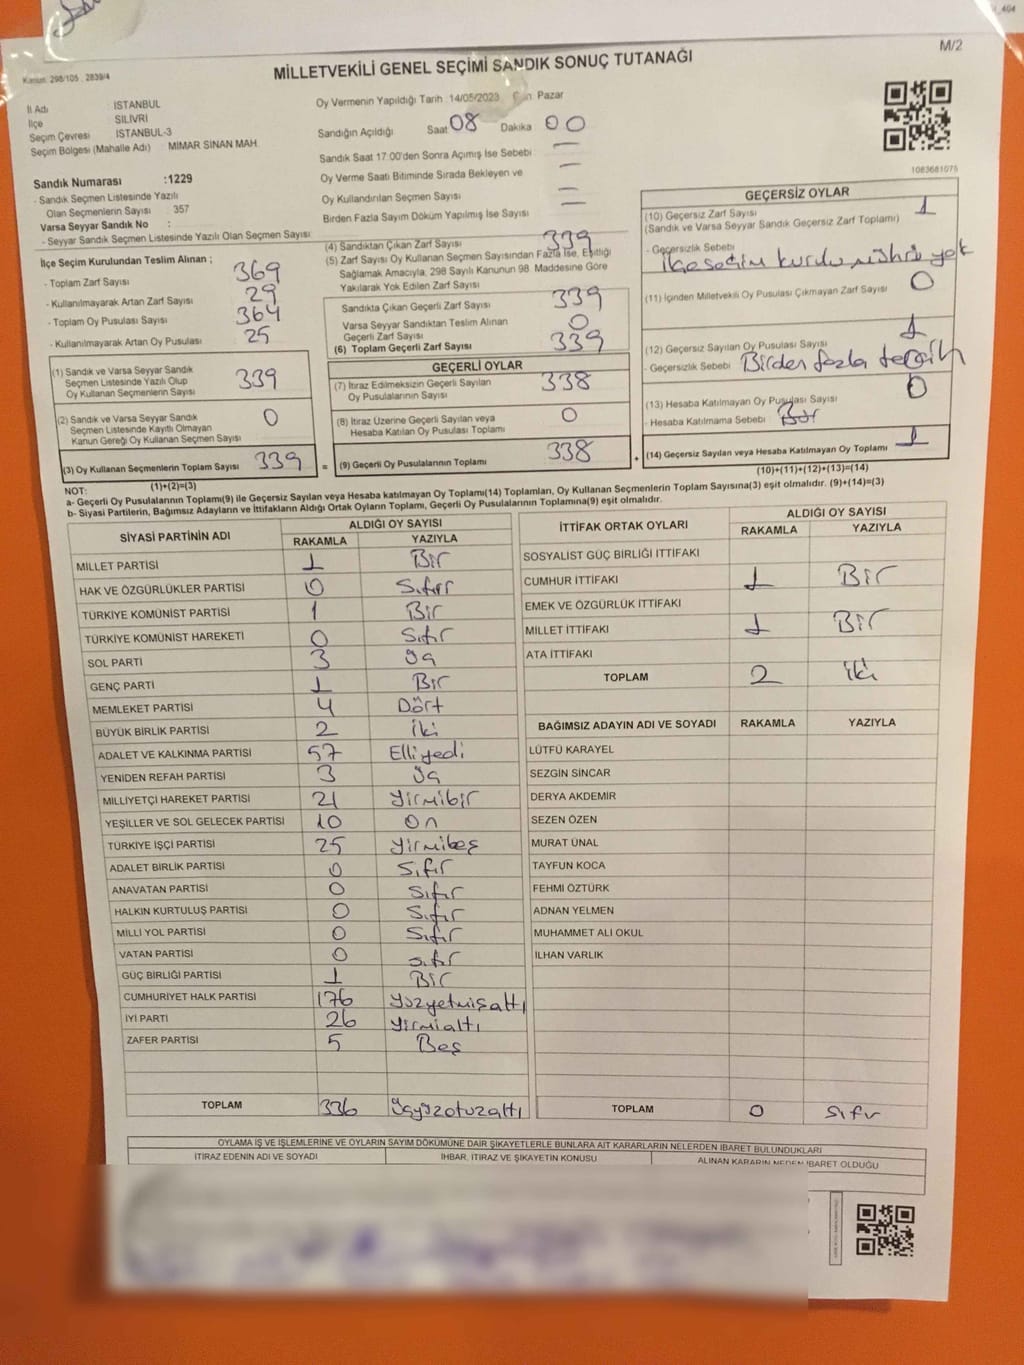 404
M/2
Kanun: 298/105 , 2839/4
MİLLETVEKİLİ GENEL SEÇİMİ SANDIK SONUÇ TUTANAĞI
İl Adı İSTANBUL
İlçe SİLİVRİ
Seçim Çevresi İSTANBUL-3
Seçim Bölgesi (Mahalle Adı) MİMAR SİNAN MAH.
Sandık Numarası :1229
- Sandık Seçmen Listesinde Yazılı
Olan Seçmenlerin Sayısı : 357
Varsa Seyyar Sandık No :
- Seyyar Sandık Seçmen Listesinde Yazılı Olan Seçmen Sayısı
Oy Vermenin Yapıldığı Tarih 14/05/2023 Pazar
Sandığın Açıldığı Saat 08 Dakika 00
Sandık Saat 17:00'den Sonra Açımış İse Sebebi —
Oy Verme Saati Bitiminde Sırada Bekleyen ve —
Oy Kullandırılan Seçmen Sayısı —
Birden Fazla Sayım Döküm Yapılmış İse Sayısı —
1083681075
İlçe Seçim Kurulundan Teslim Alınan ;
- Toplam Zarf Sayısı 369
- Kullanılmayarak Artan Zarf Sayısı 29
- Toplam Oy Pusulası Sayısı 364
- Kullanılmayarak Artan Oy Pusulası 25
(1) Sandık ve Varsa Seyyar Sandık
Seçmen Listesinde Yazılı Olup
Oy Kullanan Seçmenlerin Sayısı 339
(2) Sandık ve Varsa Seyyar Sandık
Seçmen Listesinde Kayıtlı Olmayan
Kanun Gereği Oy Kullanan Seçmen Sayısı 0
(3) Oy Kullanan Seçmenlerin Toplam Sayısı 339
(1)+(2)=(3)
(4) Sandıktan Çıkan Zarf Sayısı 339
(5) Zarf Sayısı Oy Kullanan Seçmen Sayısından Fazla İse, Eşitliği
Sağlamak Amacıyla, 298 Sayılı Kanunun 98. Maddesine Göre
Yakılarak Yok Edilen Zarf Sayısı
Sandıkta Çıkan Geçerli Zarf Sayısı 339
Varsa Seyyar Sandıktan Teslim Alınan
Geçerli Zarf Sayısı 0
(6) Toplam Geçerli Zarf Sayısı 339
GEÇERLİ OYLAR
(7) İtiraz Edilmeksizin Geçerli Sayılan
Oy Pusulalarının Sayısı 338
(8) İtiraz Üzerine Geçerli Sayılan veya
Hesaba Katılan Oy Pusulası Toplamı 0
= (9) Geçerli Oy Pusulalarının Toplamı 338
GEÇERSİZ OYLAR
(10) Geçersiz Zarf Sayısı 1
(Sandık ve Varsa Seyyar Sandık Geçersiz Zarf Toplamı)
- Geçersizlik Sebebi
ilçe seçim kurulu mührü yok
(11) İçinden Milletvekili Oy Pusulası Çıkmayan Zarf Sayısı 0
(12) Geçersiz Sayılan Oy Pusulası Sayısı 1
- Geçersizlik Sebebi Birden fazla tercih
(13) Hesaba Katılmayan Oy Pusulası Sayısı 0
- Hesaba Katılmama Sebebi
+ (14) Geçersiz Sayılan veya Hesaba Katılmayan Oy Toplamı 1
(10)+(11)+(12)+(13)=(14)
NOT:
a- Geçerli Oy Pusulalarının Toplamı(9) ile Geçersiz Sayılan veya Hesaba katılmayan Oy Toplamı(14) Toplamları, Oy Kullanan Seçmenlerin Toplam Sayısına(3) eşit olmalıdır. (9)+(14)=(3)
b- Siyasi Partilerin, Bağımsız Adayların ve İttifakların Aldığı Ortak Oyların Toplamı, Geçerli Oy Pusulalarının Toplamına(9) eşit olmalıdır.
SİYASİ PARTİNİN ADI ALDIĞI OY SAYISI
RAKAMLA YAZIYLA
MİLLET PARTİSİ 1 Bir
HAK VE ÖZGÜRLÜKLER PARTİSİ 0 Sıfır
TÜRKİYE KOMÜNİST PARTİSİ 1 Bir
TÜRKİYE KOMÜNİST HAREKETİ 0 Sıfır
SOL PARTİ 3 Üç
GENÇ PARTİ 1 Bir
MEMLEKET PARTİSİ 4 Dört
BÜYÜK BİRLİK PARTİSİ 2 İki
ADALET VE KALKINMA PARTİSİ 57 Elliyedi
YENİDEN REFAH PARTİSİ 3 Üç
MİLLİYETÇİ HAREKET PARTİSİ 21 Yirmibir
YEŞİLLER VE SOL GELECEK PARTİSİ 10 On
TÜRKİYE İŞÇİ PARTİSİ 25 Yirmibeş
ADALET BİRLİK PARTİSİ 0 Sıfır
ANAVATAN PARTİSİ 0 Sıfır
HALKIN KURTULUŞ PARTİSİ 0 Sıfır
MİLLİ YOL PARTİSİ 0 Sıfır
VATAN PARTİSİ 0 sıfır
GÜÇ BİRLİĞİ PARTİSİ 1 Bir
CUMHURİYET HALK PARTİSİ 176 Yüzyetmişaltı
İYİ PARTİ 26 Yirmialtı
ZAFER PARTİSİ 5 Beş
TOPLAM 336 Üçyüzotuzaltı
İTTİFAK ORTAK OYLARI ALDIĞI OY SAYISI
RAKAMLA YAZIYLA
SOSYALİST GÜÇ BİRLİĞİ İTTİFAKI
CUMHUR İTTİFAKI 1 Bir
EMEK VE ÖZGÜRLÜK İTTİFAKI
MİLLET İTTİFAKI 1 Bir
ATA İTTİFAKI
TOPLAM 2 iki
BAĞIMSIZ ADAYIN ADI VE SOYADI RAKAMLA YAZIYLA
LÜTFÜ KARAYEL
SEZGİN SİNCAR
DERYA AKDEMİR
SEZEN ÖZEN
MURAT ÜNAL
TAYFUN KOCA
FEHMİ ÖZTÜRK
ADNAN YELMEN
MUHAMMET ALİ OKUL
İLHAN VARLIK
TOPLAM 0 Sıfır
OYLAMA İŞ VE İŞLEMLERİNE VE OYLARIN SAYIM DÖKÜMÜNE DAİR ŞİKAYETLERLE BUNLARA AİT KARARLARIN NELERDEN İBARET BULUNDUKLARI
İTİRAZ EDENİN ADI VE SOYADI İHBAR, İTİRAZ VE ŞİKAYETİN KONUSU ALINAN KARARIN NEDEN İBARET OLDUĞU